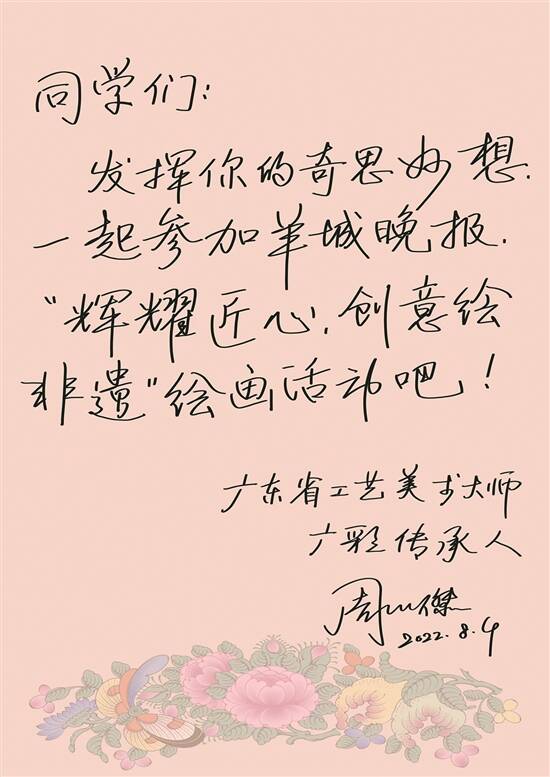 同学们:
发挥你的奇思妙想.
一起参加羊城晚报.
"辉耀匠心,创意绘
非遗"绘画活动吧!
广东省工艺美术大师
广彩传承人
周
2022.8.4